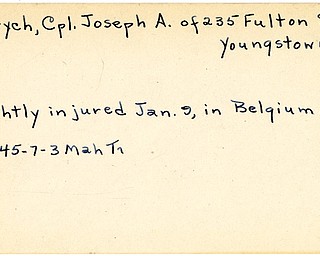 ych, Cpl. Joseph A. of 235 Fulton
Youngstow
htly injured Jan. 9, in Belgium
45-7-3 Mah Tr